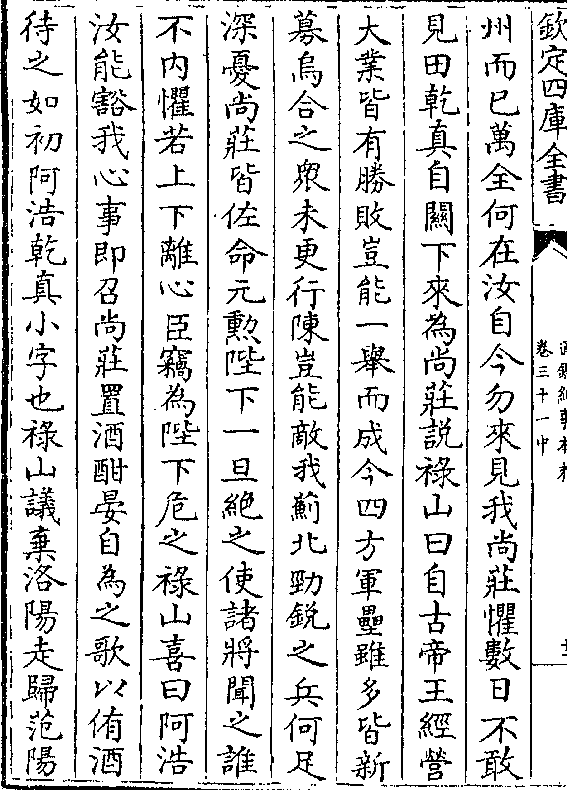 欽定四庫全書
通鑑紀事本末
卷三十一中
州而已萬全何在汝自今勿來見我尚莊懼數日不敢
見田乾真自關下來為尚莊説祿山曰自古帝王經營
大業皆有勝敗豈能一舉而成今四方軍壘雖多皆新
募烏合之衆未更行陳豈能敵我薊北勁鋭之兵何足
深憂尚莊皆佐命元勲陛下一旦絶之使諸將聞之誰
不内懼若上下離心臣竊為陛下危之祿山喜曰阿浩
汝能豁我心事即召尚莊置酒酣晏自為之歌以侑酒
待之如初阿浩乾真小字也祿山議棄洛陽走歸范陽